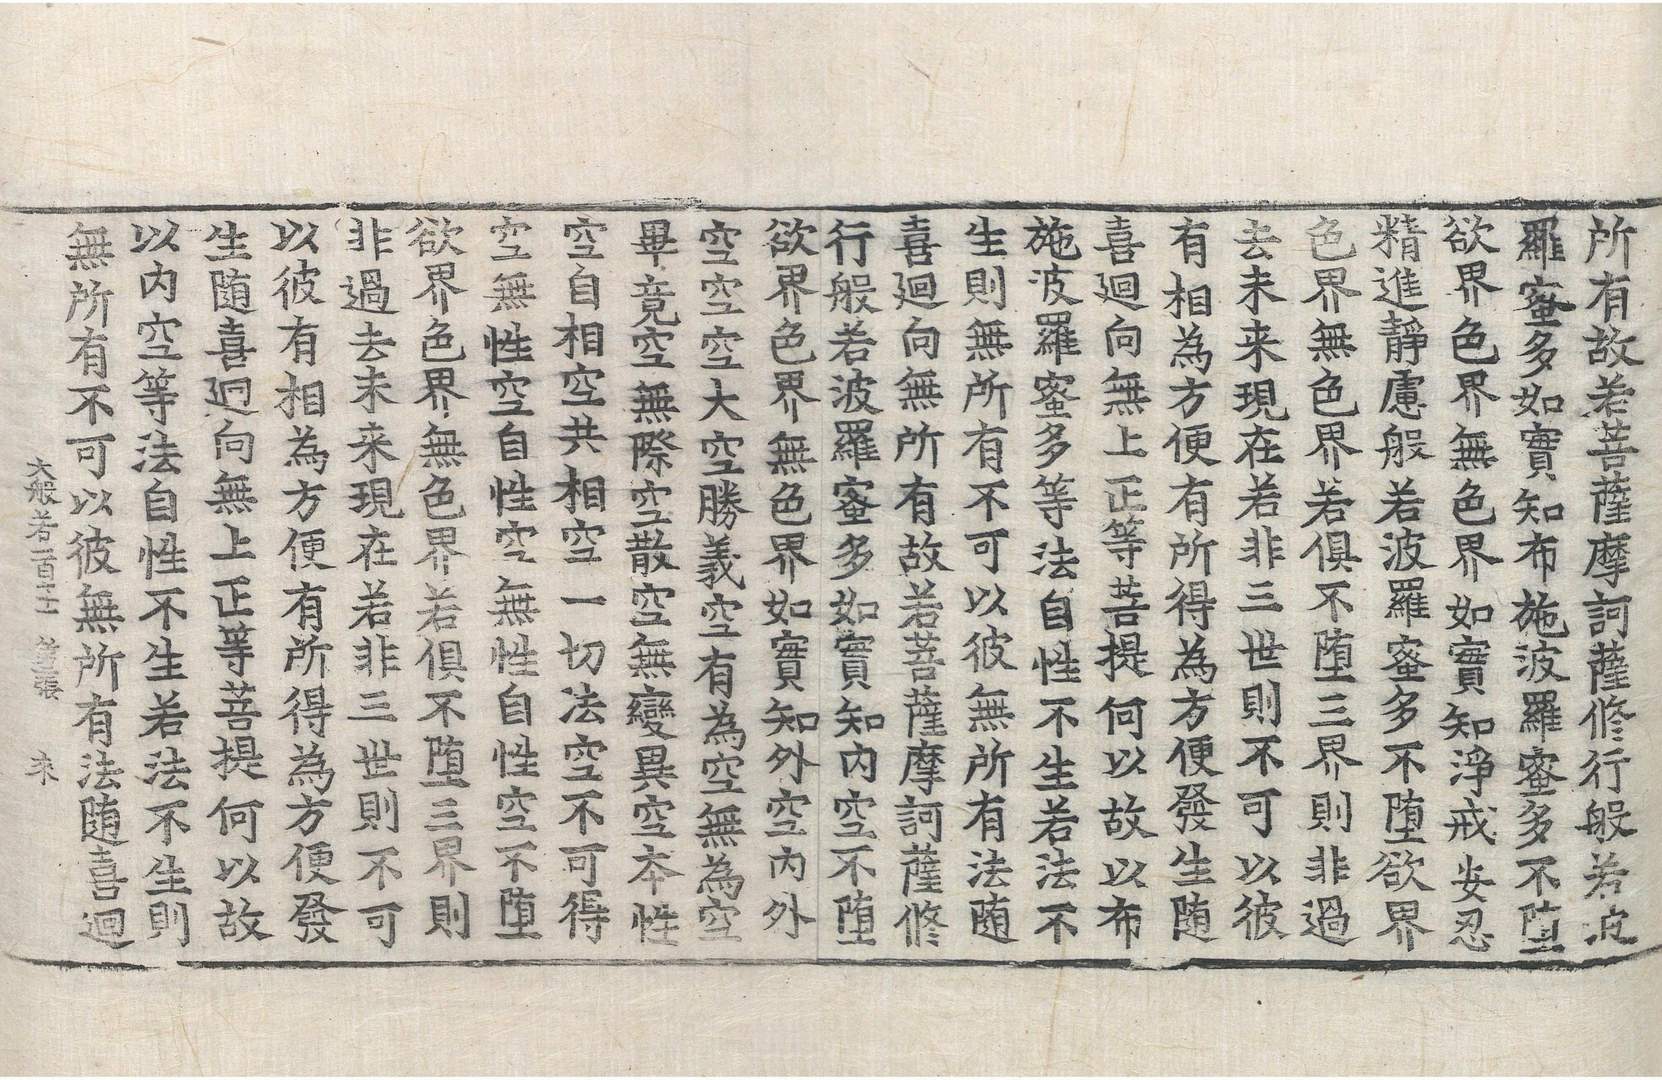 所有故若菩薩摩訶薩修行般若波
羅蜜多如實知布施波羅蜜多不墮
欲界色界無色界如實知淨戒安忍
精進靜慮般若波羅蜜多不墮欲界
色界無色界若俱不墮三界則非過
去未来現在若非三世則不可以彼
有相為方便有所得為方便發生随
喜廻向無上正等菩提何以故以布
施波羅蜜多等法自性不生若法不
生則無所有不可以彼無所有法随
喜廻向無所有故若菩薩摩訶薩修
行般若波羅蜜多如實知內空不墮
欲界色界無色界如實知外空內外
空空空大空勝義空有為空無為空
畢竟空無際空散空無變異空本性
空自相空共相空一切法空不可得
空無性空自性空無性自性空不墮
欲界色界無色界若俱不墮三界則
非過去未来現在若非三世則不可
以彼有相為方便有所得為方便發
生随喜廻向無上正等菩提何以故
以內空等法自性不生若法不生則
無所有不可以彼無所有法随喜廻
大般若一百 張 来